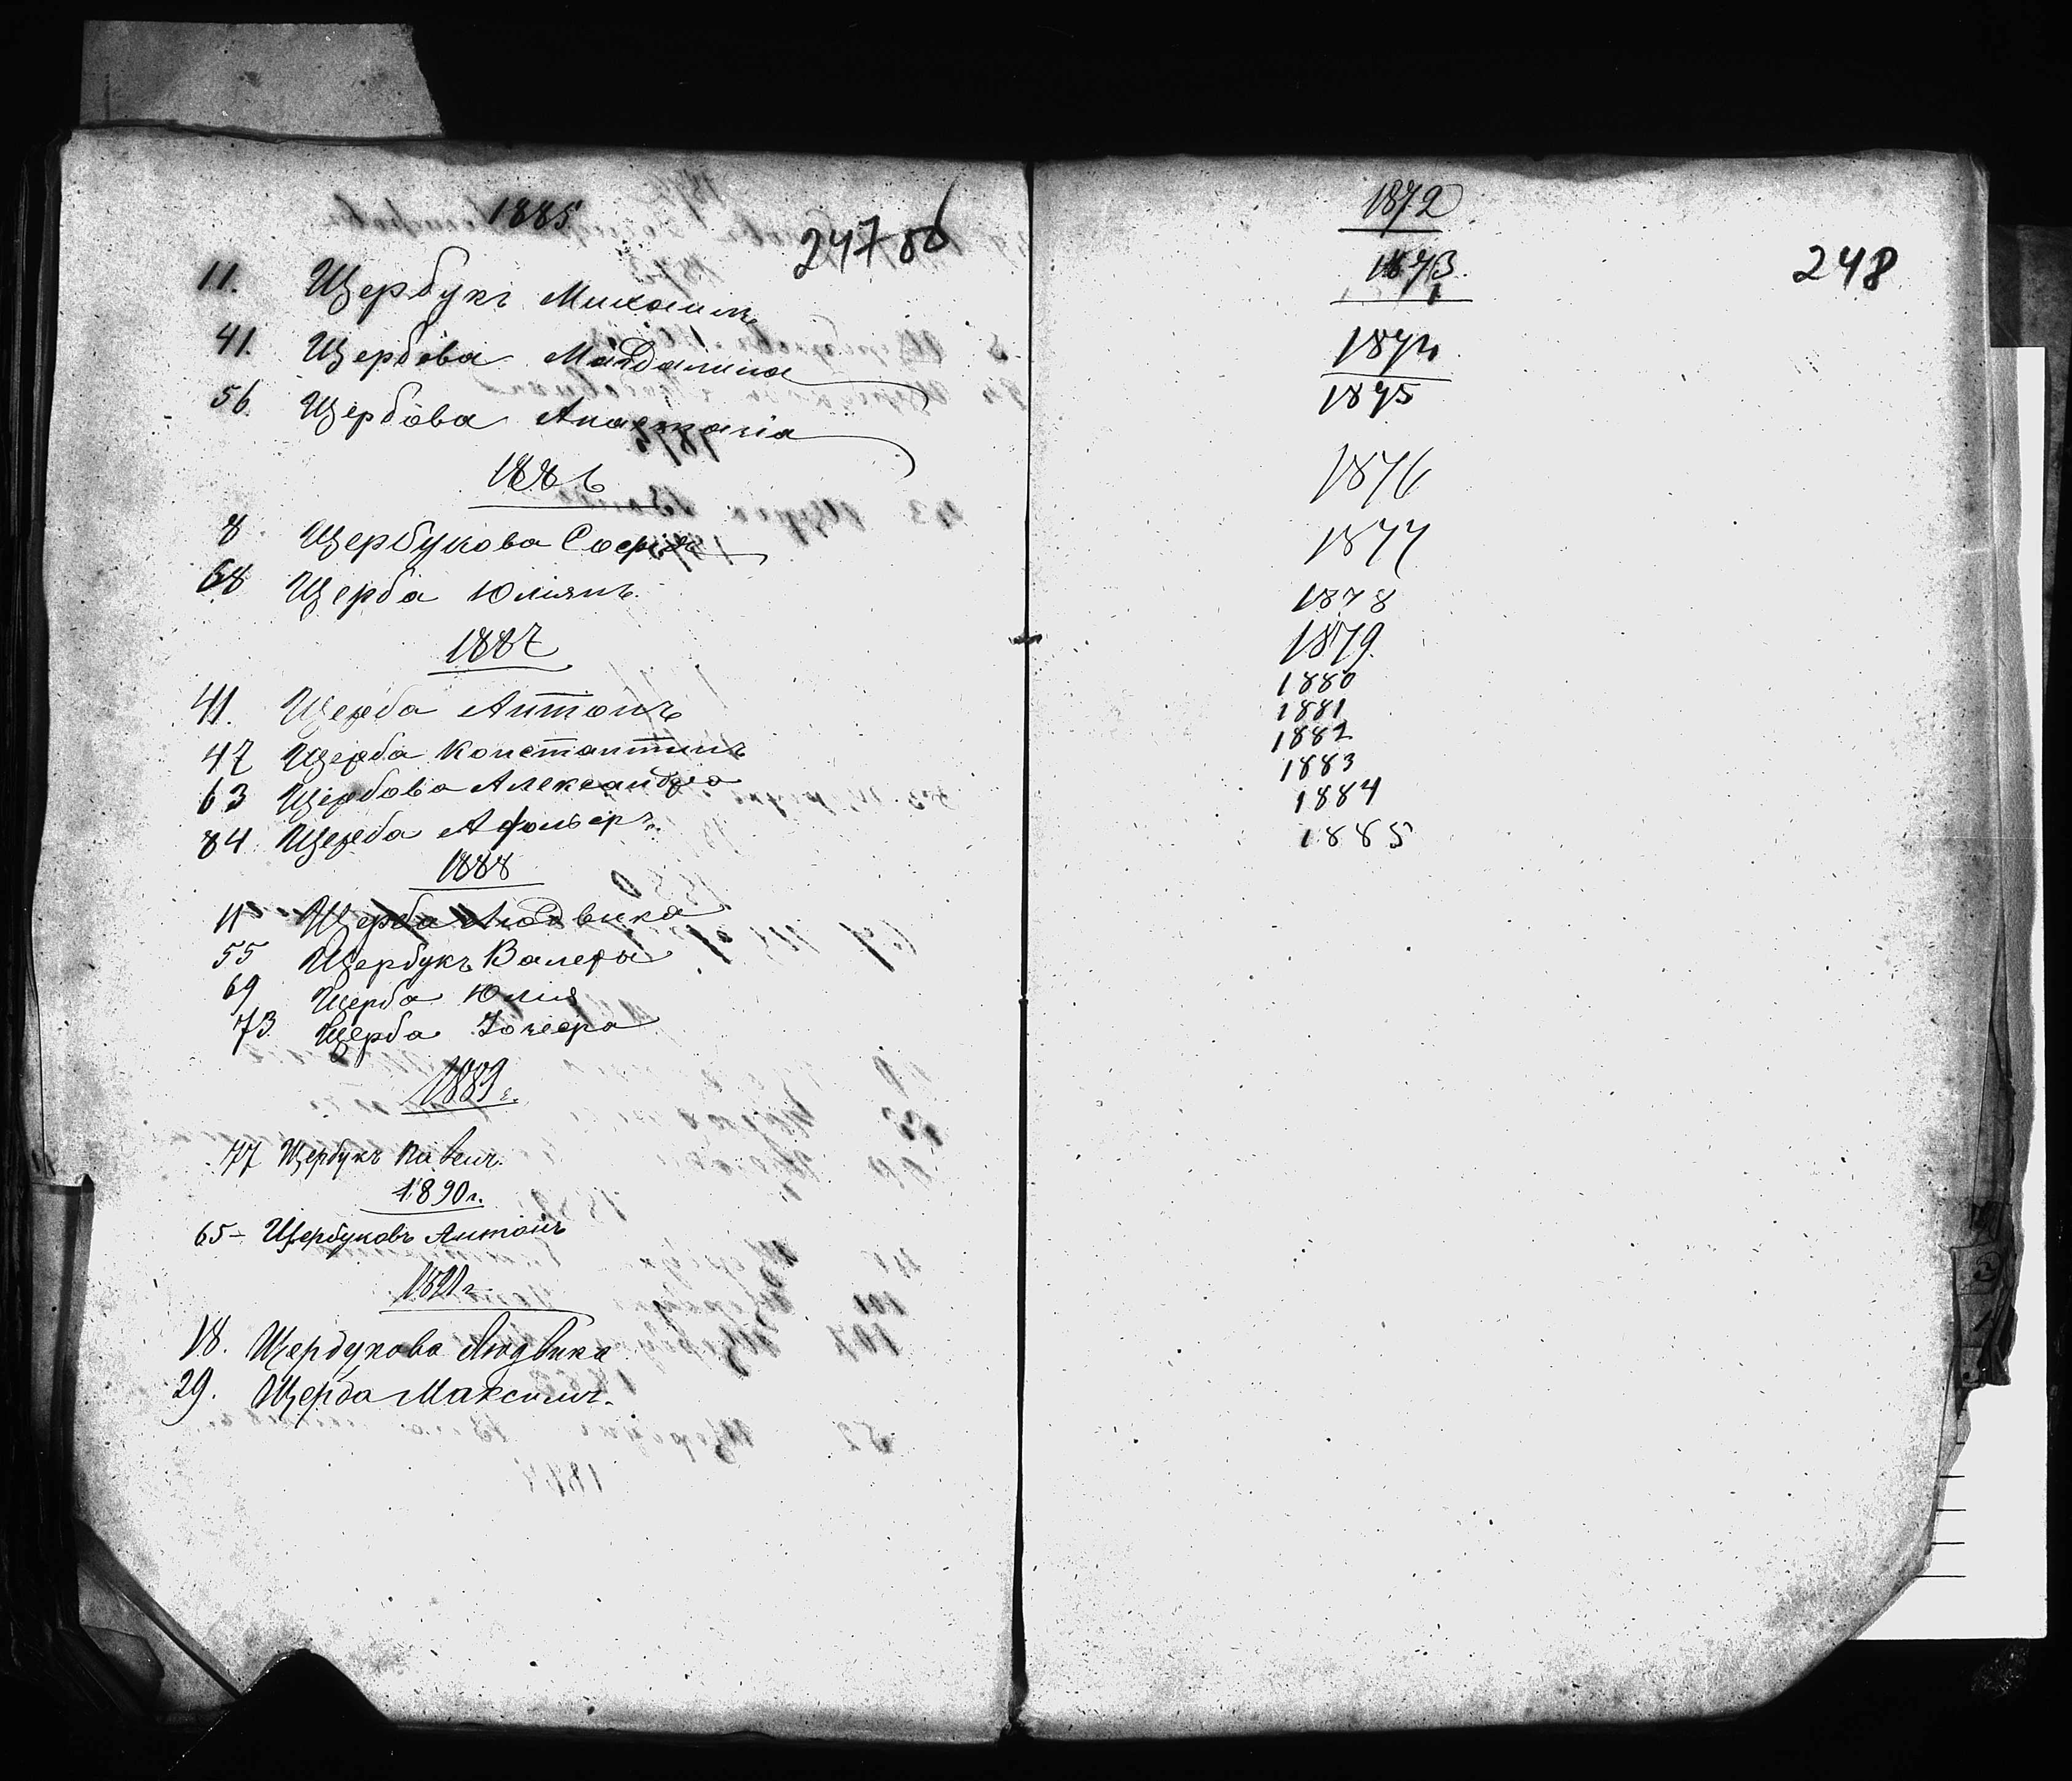 1885
247 об
11. Щербукъ Михаилъ
41. Щербова Магдалина
56. Щербова Анастасія
1886
8 Щербукова Софія
68 Щерба Юліянъ
1887
41. Щерба Антонъ
47 Щерба Константинъ
63 Щербова Александра
84. Щерба
1888
11 Щерба Людвика
55 Щербукъ Валеры
69 Щерба Юлія
73. Щерба Іозефа
1889 г.
77 Щербукъ Павелъ.
1890 г.
65 – Щербуковъ Антонъ
1891 г.
18. Щербукова Людвика
29. Щерба Максимъ.
1872
1873.
248
1874
1875
1876
1877
1878
1879.
1880
1881
1882
1883
1884
1885